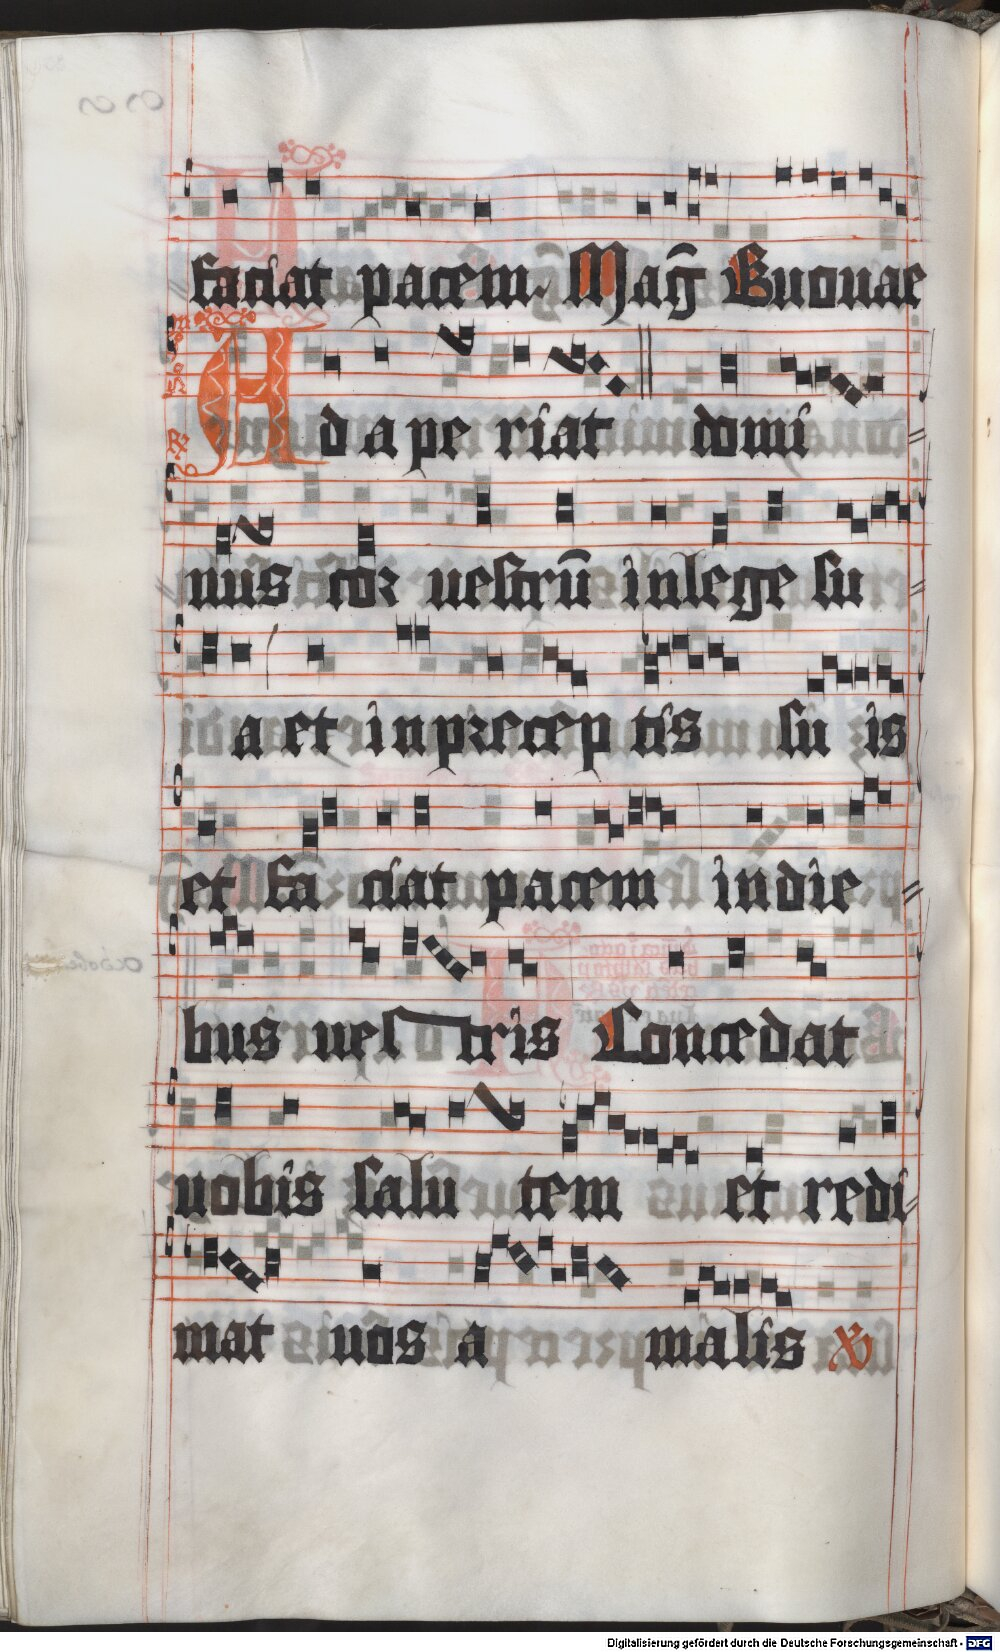 faciat pacem. Mag̅ Euouae
Adape riat domi
nus cor uestru̅ inlege su
a et inprecep tis su is
et fa ciat pacem indie
bus ues tris Concedat
uobis salu tem et redi
mat uos a malis
Digitalisierung gefördert durch die Deutsche Forschungsgemeinschaft - DFG